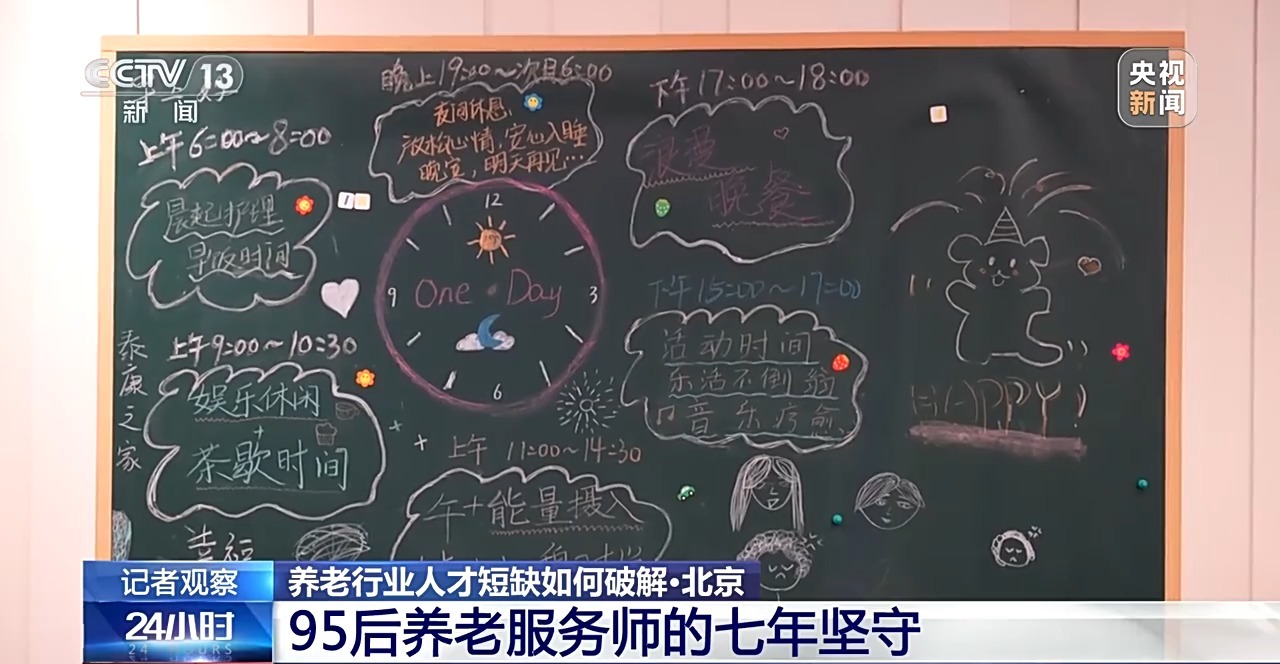 CCTV 13
新闻
央视
新闻
晚上19:00~次日6:00
夜间休息:
放松心情,安心入睡
晚安,明天再见…
下午17:00~18:00
浪漫
晚餐
上午6:00~8:00
晨起护理
早饭时间
12
9
One Day
3
6
下午15:00~17:00
活动时间
乐活不倒翁
音乐疗愈
泰康之家
上午9:00~10:30
娱乐休闲
+
茶歇时间
上午 11:00~14:30
午+能量摄入
HAPPY!
幸福
记者观察
24小时
24 HOURS
养老行业人才短缺如何破解·北京
95后养老服务师的七年坚守